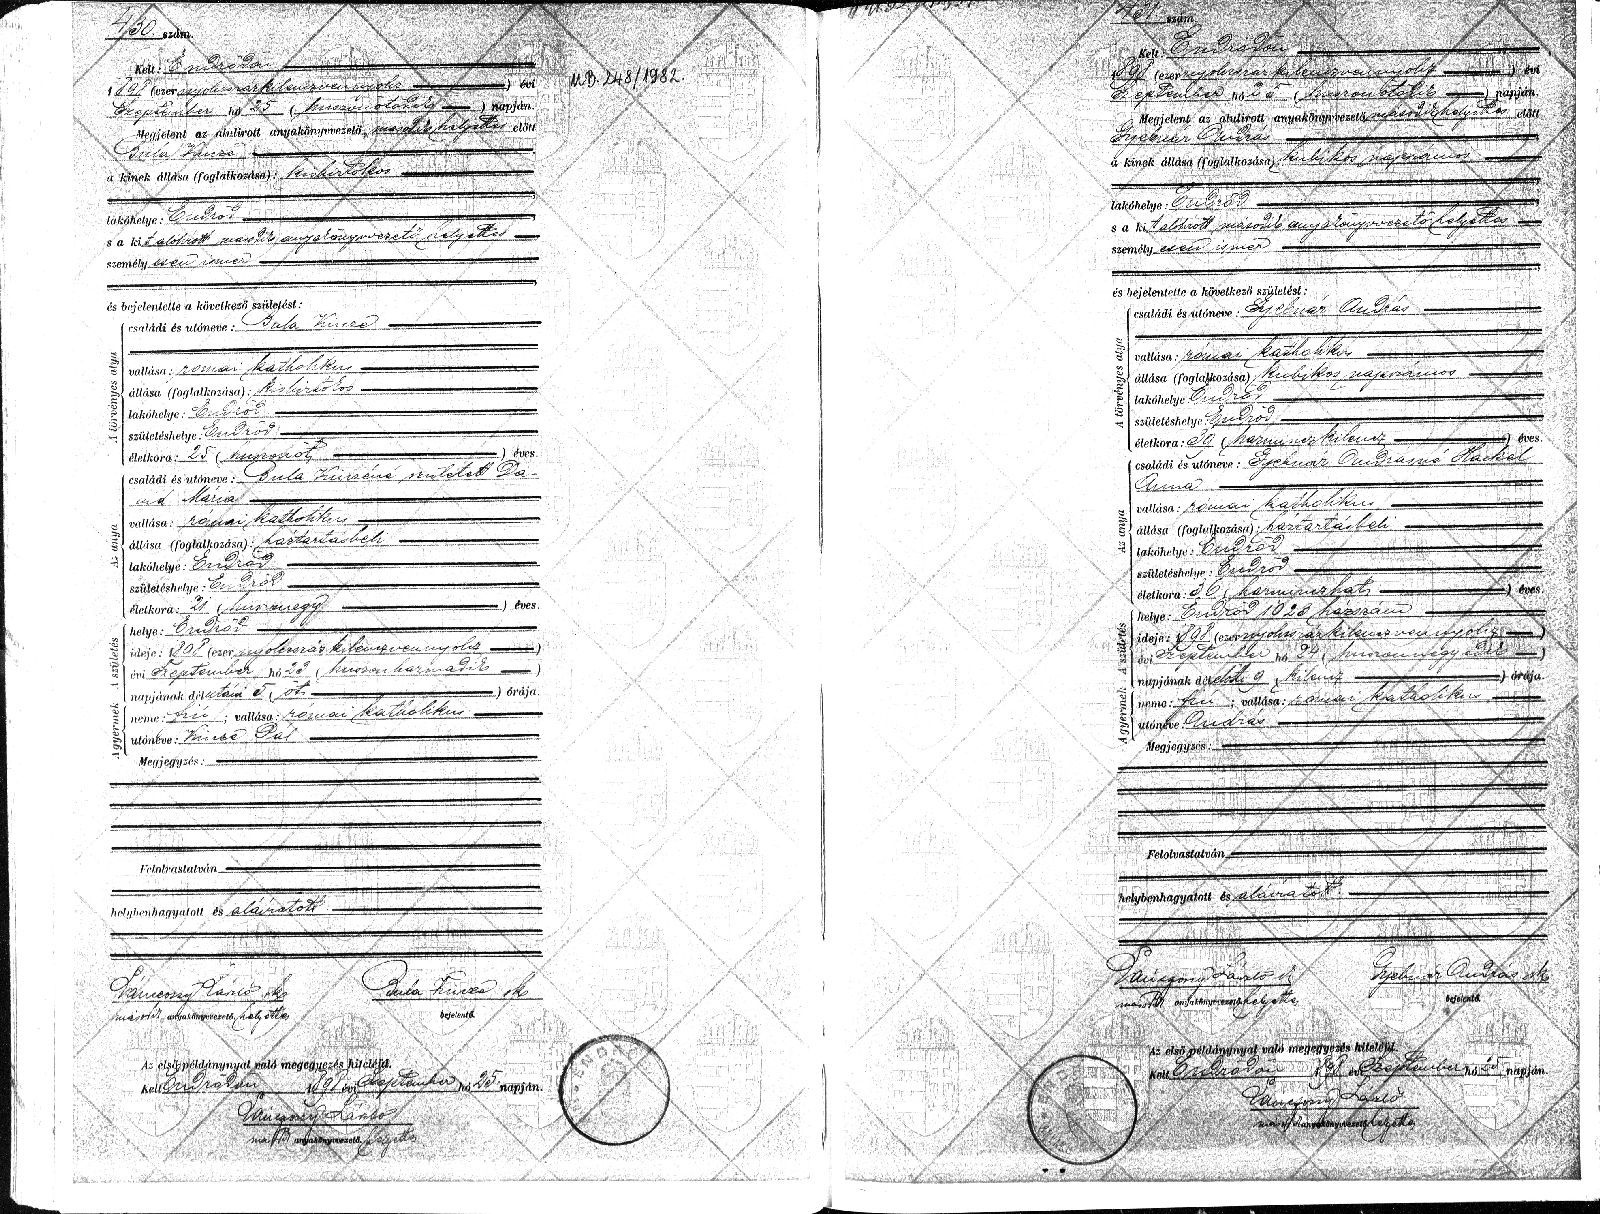 450. szám.
Kelt: Endrődön
1898 (ezernyolcszázkilenczvennyolcz) évi
Szeptember hó 25 (huszonötödik) napján.
Megjelent az alulírott anyakönyvvezető, második helyettes előtt
Bula Vincze
a kinek állása (foglalkozása): kisbirtokos
lakóhelye: Endrőd
s a kit alólírott második anyakönyvvezető helyettes
személyesen ismer
és bejelentette a következő születést:
A törvényes atya
családi és utóneve: Bula Vincze
vallása: római katholikus
állása (foglalkozása): kisbirtokos
lakóhelye: Endrőd
születéshelye: Endrőd
életkora: 25 (huszonöt) éves.
Az anya
családi és utóneve: Bula Vinczéné született Da-
vid Mária
vallása: római katholikus
állása (foglalkozása): háztartásbeli
lakóhelye: Endrőd
születéshelye: Endrőd
életkora: 21 (huszonegy) éves.
A gyermek A születés
helye: Endrőd
ideje: 1898 (ezernyolcszázkilenczvennyolcz)
évi Szeptember hó 23 (huszonharmadik)
napjának délutáni 5 (öt) órája.
neme: fiú; vallása: római katholikus
utóneve: Vincze Pál
Megjegyzés:
Felolvastatván
helybenhagyatott és aláíratott
László sk Bula Vincze sk
másod anyakönyvvezető helyettes bejelentő.
Az első példánynyal való megegyezés hiteléül.
Kelt Endrődön 1898 évi Szeptember hó 25 napján.
László
másod anyakönyvvezető. helyettes
M.B. 248/1982
451. szám.
Kelt: Endrődön
1898 (ezernyolcszázkilenczvennyolcz) évi
Szeptember hó 25 (huszonötödik) napján.
Megjelent az alulírott anyakönyvvezető, második helyettes előtt
Gyebnár András
a kinek állása (foglalkozása) kubikos napszámos
lakóhelye: Endrőd
s a kit alólírott második anyakönyvvezető helyettes
személyesen ismer
és bejelentette a következő születést:
A törvényes atya
családi és utóneve: Gyebnár András
vallása: római katholikus
állása (foglalkozása) kubikos napszámos
lakóhelye Endrőd
születéshelye: Endrőd
életkora: 39 (harminczkilencz) éves.
Az anya
családi és utóneve: Gyebnár Andrásné
Anna
vallása: római katholikus
állása (foglalkozása): háztartásbeli
lakóhelye: Endrőd
születéshelye: Endrőd
életkora: 36 (harminczhat) éves.
A gyermek A születés
helye: Endrőd 1928 házszám
ideje: 1898 (ezernyolcszázkilenczvennyolcz)
évi Szeptember hó 24 (huszonnegyedik)
napjának délelőtti 9 (kilencz) órája.
neme: fiú; vallása: római katholikus
utóneve: András
Megjegyzés:
Felolvastatván
helybenhagyatott és aláíratott
László sk Gyebnár András sk
másod anyakönyvvezető helyettes bejelentő.
Az első példánynyal való megegyezés hiteléül.
Kelt Endrődön 1898 évi Szeptember hó 25 napján.
László
másod anyakönyvvezető. helyettes